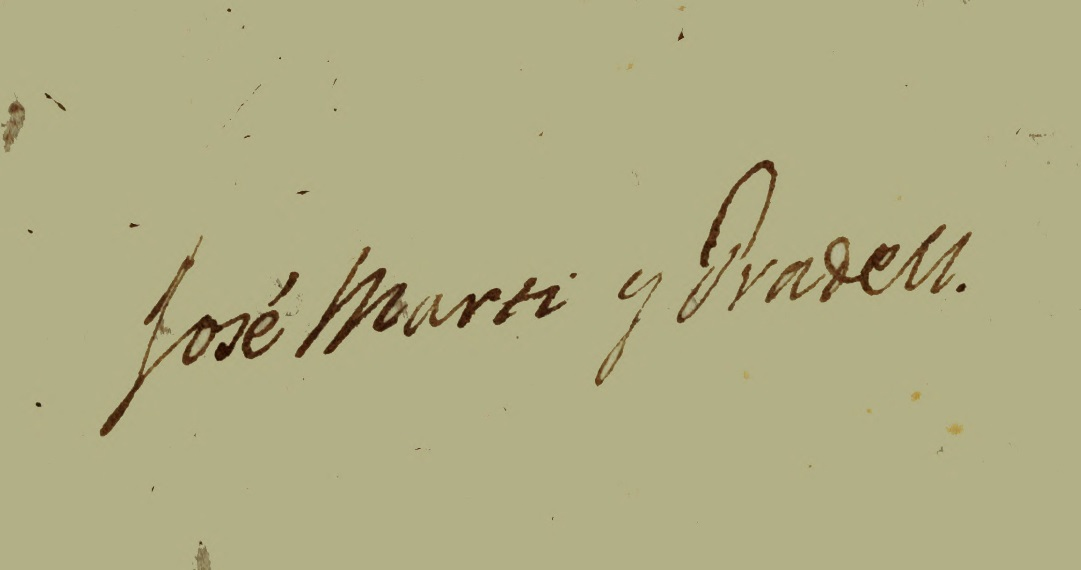 José Marti y Pradell.